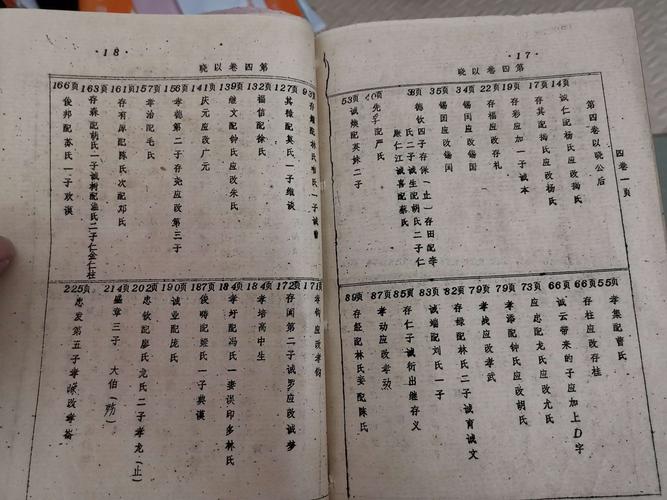 ·17·
第四卷以晓
四卷一页
第四卷以晓公后
14页
诚仁配杨氏应改揭氏
17页
存其配揭氏应改杨氏
19页
存彩应加一子诚本
22页
存福应改存礼
34页
锡闰应改锡国
35页
锡田应改锡闰
38页
德钦四子存保(止)存田配李
氏二子诚生配胡氏二子仁
仁江诚喜配蔡氏
40页
先孚配严氏
53页
诚焕配英妹二子
55页
孝集配曹氏
66页
存柱应改存桂
66页
诚云带来的子应加上D字
73页
应忠配龙氏应改尤氏
79页
孝添配钟氏应改胡氏
79页
孝战应改孝武
82页
存绿配林氏二子诚育诚文
83页
诚端配刘氏一子
85页
存仁子诚衍出继存义
87页
孝动应改孝勋
89页
存经配林氏妾配陈氏
·18·
第四卷以晓
93页
127页
其能配莫氏一子继谈
132页
福信配徐氏
139页
继文配钟氏应改朱氏
141页
庆元应改广元
156页
孝德第二子存尧应改第三子
157页
孝治配毛氏
161页
存有原配陈氏次配邓氏
163页
存森配胡氏一子诚树配温氏二子仁金仁柱
166页
俊邦配苏氏一子欢谟
171页
172页
存闰第二子诚罗应改诚梦
184页
孝培高中生
184页
孝圩配冯氏一妻误印多林氏
187页
俊畴配姬氏一子典谟
190页
诚业配庞氏
202页
忠钦配廖氏龙氏二子孝龙(止)
214页
盛章三子 大伯(殇)
225页
忠发第五子孝